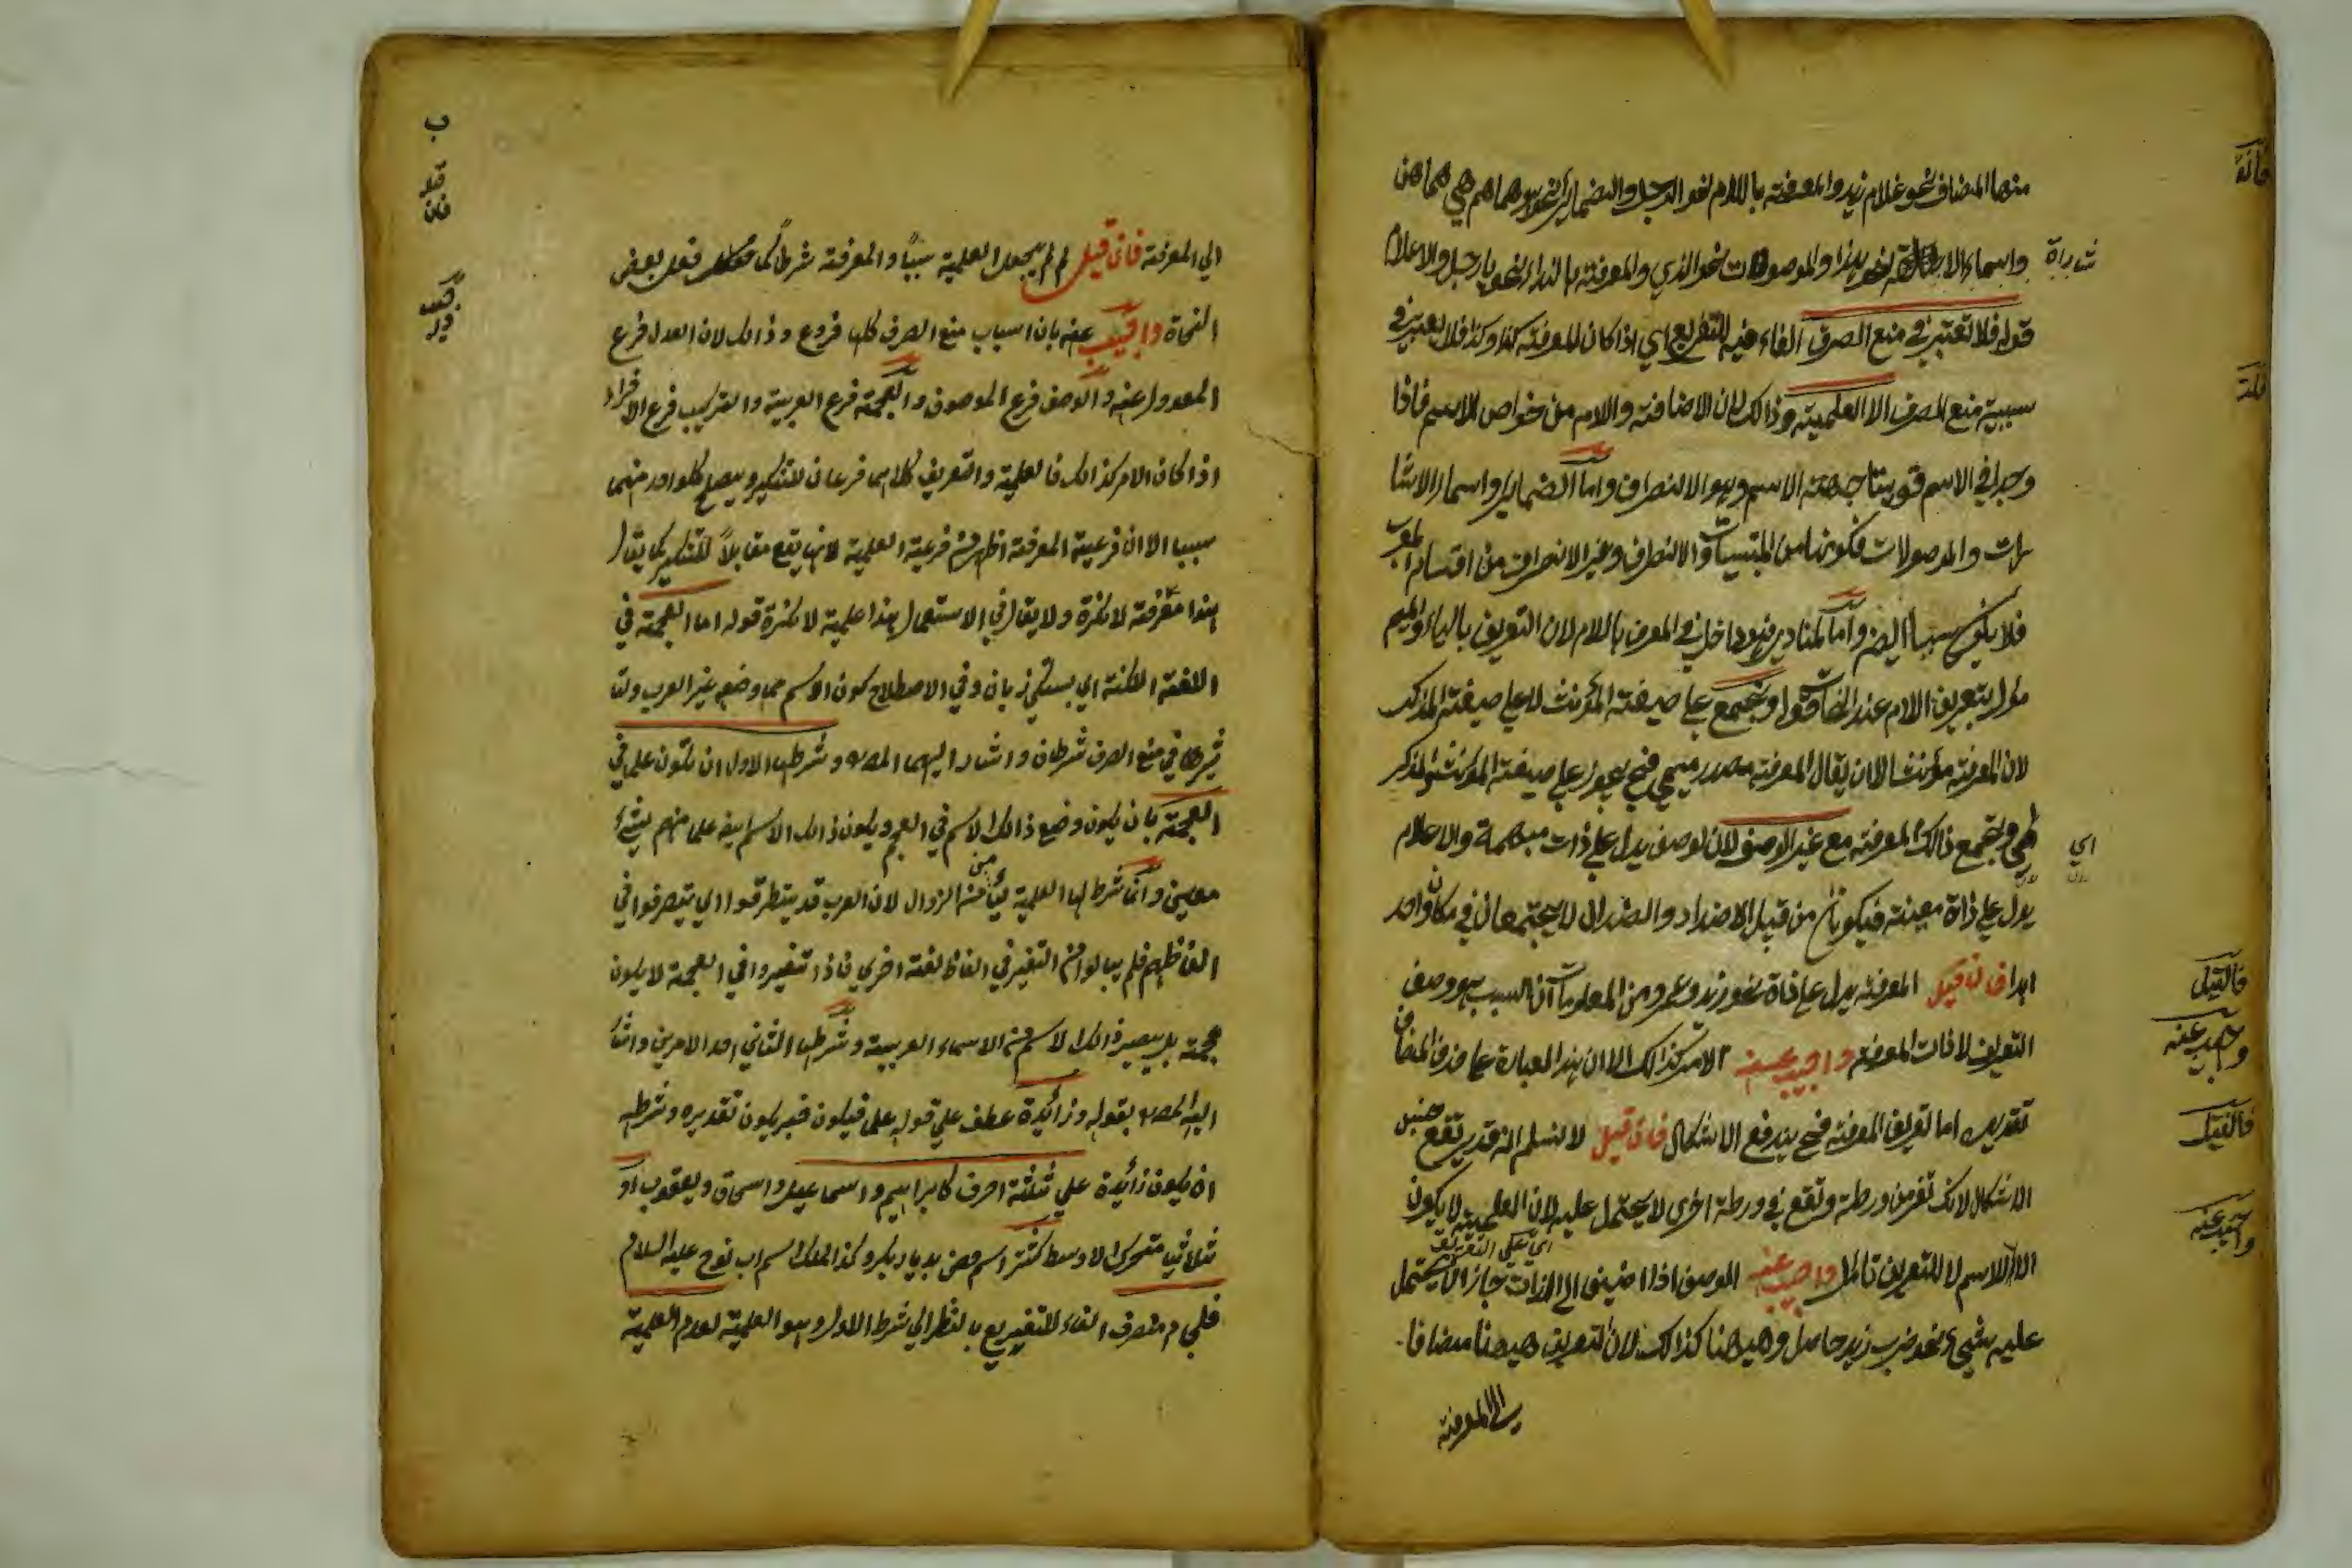 منها المضاف نحو غلام زيد والمعرفة باللام نحو الرجل والضماير نحو هو هما هم هي هما هن
واسماء الاشارة نحو هذا والموصولات نحو الذي والمعرفة بالنداء نحو يا رجل والاعلام
شارة
قوله فلا تعتبر في منع الصرف الفاء فيه للتفريع اي اذا كان المعرفة كذا وكذا فلا يعتبر في
سببية منع الصرف الا العلمية وذالك لان الاضافة والام من خواص الاسم فاذا
وجدا في الاسم قويتا جهة الاسم وهو الانصراف واما الضماير واسماء الاشا
رات والموصولات فكونها من المبنيات والانصراف وغير الانصراف من اقسام المعرب
فلا يكون سببا ايضا واما المنادى فهو داخل في المعرف باللام لان التعريف بالياء والميم
مؤل بتعريف الام عند النحات قوله وتجمع على صيغة المؤنث لا على صيغة المذكر
لان المعرفة مؤنث الا ان يقال المعرفة مصدر ميمي فح يجوز على صيغة المؤنث والمذكر
وتجمع ذالك المعرفة مع غير الوصف لان لوصف يدل على ذات مبهمة والاعلام
اي
يدل على ذاة معينة فيكونان من قبيل الاضداد والضدان لا يجتمعان في مكان واحد
ابدا فان قيل المعرفة يدل على ذاة نحو زيد وعمرو ومن المعلومات ان السبب هو وصف
فالقيل
التعريف لا ذات المعرفة واجيب عنه الامر كذالك الا ان هذا العبارة على حذف المضاف
واجيب عنه
تقديره اما تعريف المعرفة فح يندفع الاشكال فان قيل لا نسلم انه قد يقع
فالقيل
الاشكال لانك تفر من ورطة وتقع في ورطة اخرى لا يحتمل عليه لان العلمية لا يكون
اي على التعريف
الا للاسم لا للتعريف تامل واجيب عنه الوصف اذا اضيف الى الذات جاز ان يحتمل
واجيب عنه
عليه شيء نحو ضرب زيد حاصل وهيهنا كذالك لان التعريف هيهنا مضافا
الى المعرفة
ب
الي المعرفة فان قيل لم لم يجعل العلمية سببًا والمعرفة شرطًا كما فعل بعض
قيل
فان
النحاة واجيب عنه بان اسباب منع الصرف كلها فروع وذالك لان العدل فرع
المعدول عنه والوصف فرع الموصوف والعجمة فرع العربية والتركيب فرع الافراد
اذا كان الامر كذالك فالعلمية والتعريف كلاهما فرعان للتنكير ويصلح كلواحد منهما
سببا الا ان فرعية المعرفة اظهر من فرعية العلمية لانها يقع مقابلاً للتنكير كما يقال
هذا معرفة لا نكرة ولا يقال في الاستعمال هذا علمية لا نكرة قوله اما العجمة في
اللغة اللكنة اي بستكي زبان وفي الاصطلاح كون الاسم مما وضعه غير العرب ولها
شرطا في منع الصرف شرطان واشار اليهما المصه وشرطها الاول ان تكون علما في
العجمة بان يكون وضع ذالك الاسم في العجم ويكون ذالك الاسم ايضا علما منهم بشيء
معين وانما شرط لها العلمية ليأمن من الزوال لان العرب قد يتطرقوا اي يتصرفوا في
الفاظهم فلم يبالوا من التغير في الفاظ لغة اخري فاذا تغيروا في العجمة لا يكون
عجمة بل يصير ذالك الاسم من الاسماء العربية وشرطها الثاني احد الامرين واشا
اليه المصه بقوله وزائدة عطف علي قوله علما فيكون تقديره وشرطه
ان يكون زائدة علي ثلثة احرف كابراهيم واسماعيل واسحاق ويعقوب او
ثلاثيا متحرك الاوسط كشتر اسم حصن بديار بكر وكذا لمك اسم اب نوح عليه السلام
فلجام منصرف الفاء للتفريع بالنظر الي شرط الاول وهو العلمية لعدم العلمية